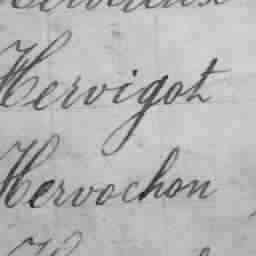 Hervigot
Hervochon